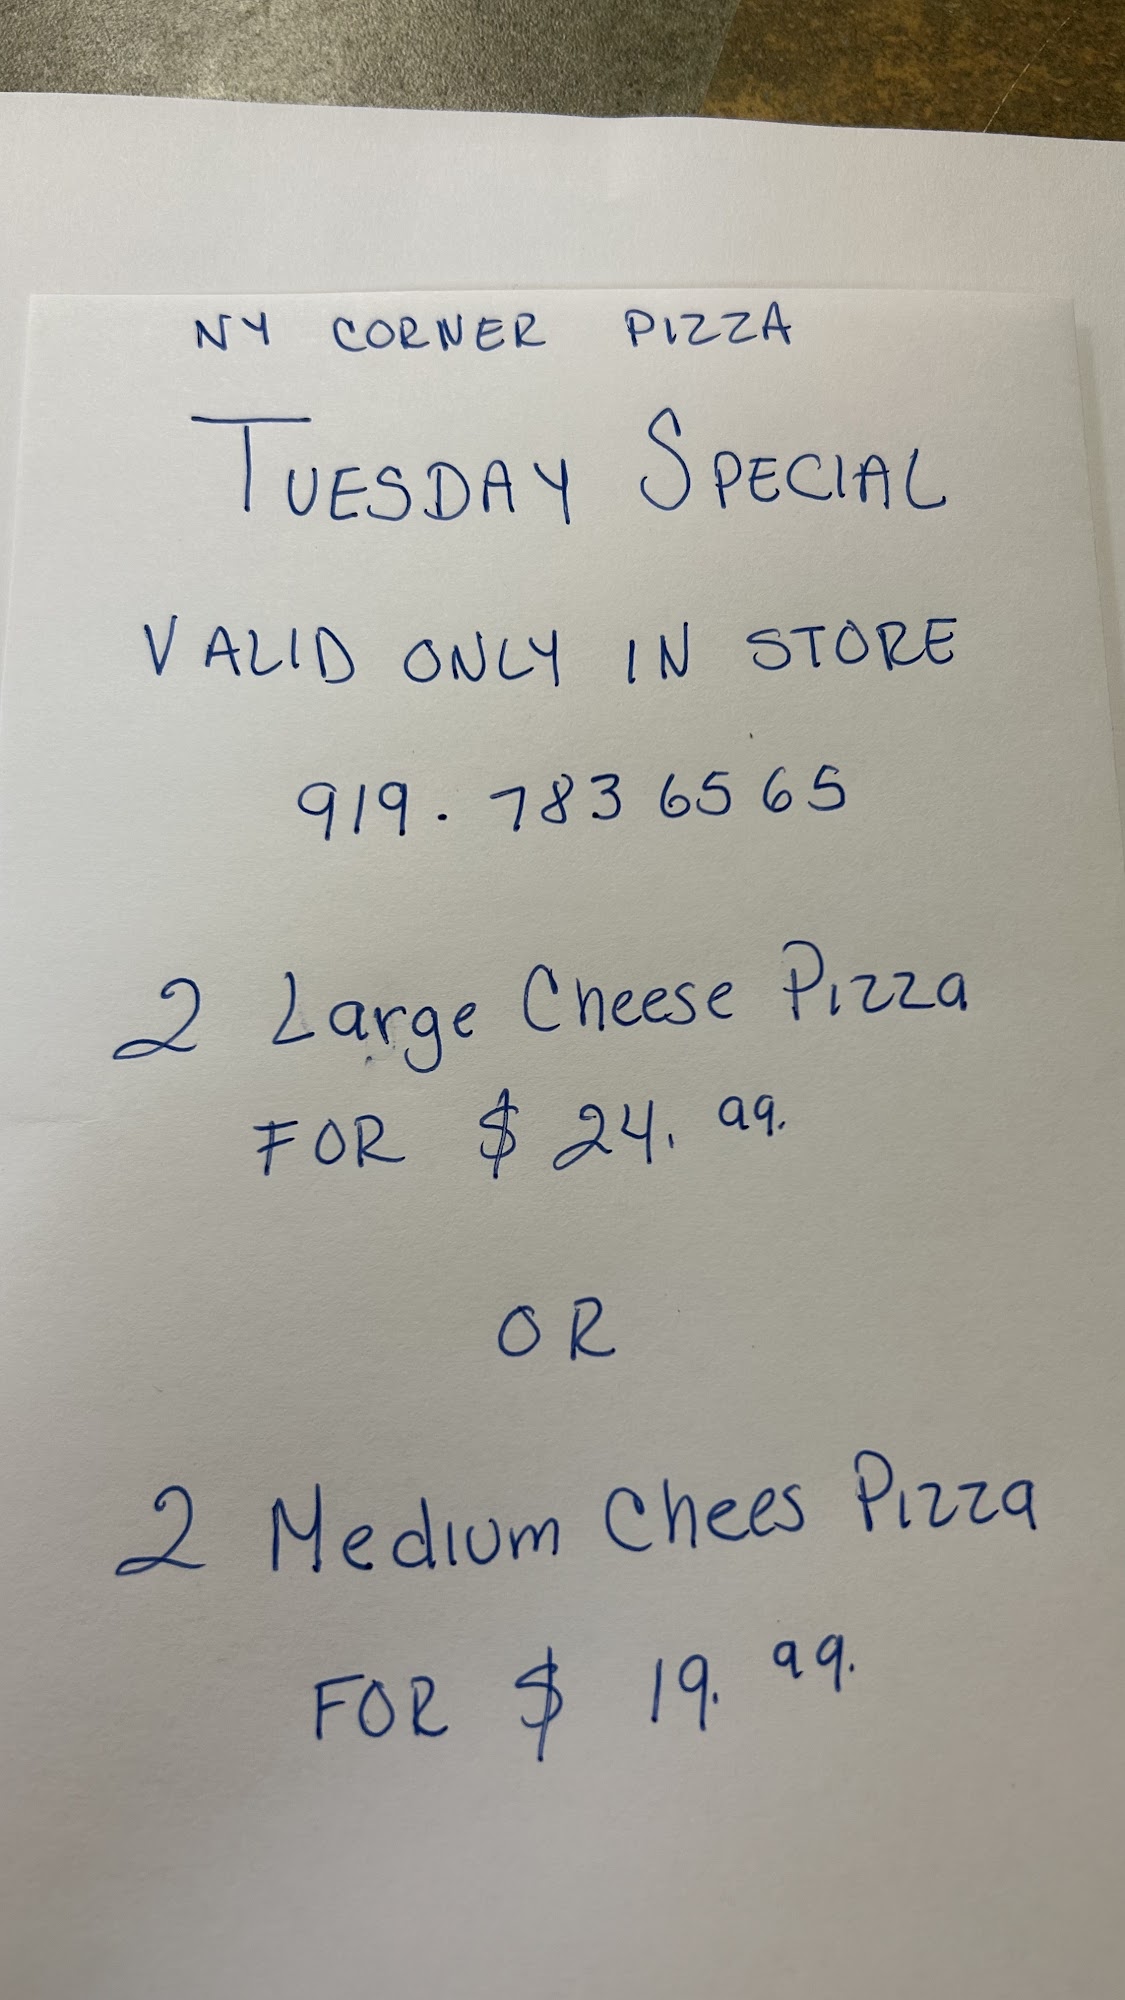 NY CORNER PIZZA
TUESDAY SPECIAL
VALID ONLY IN STORE
919. 783 6565
2 Large Cheese Pizza
FOR $ 24. 99.
OR
2 Medium Chees Pizza
FOR $ 19. 99.